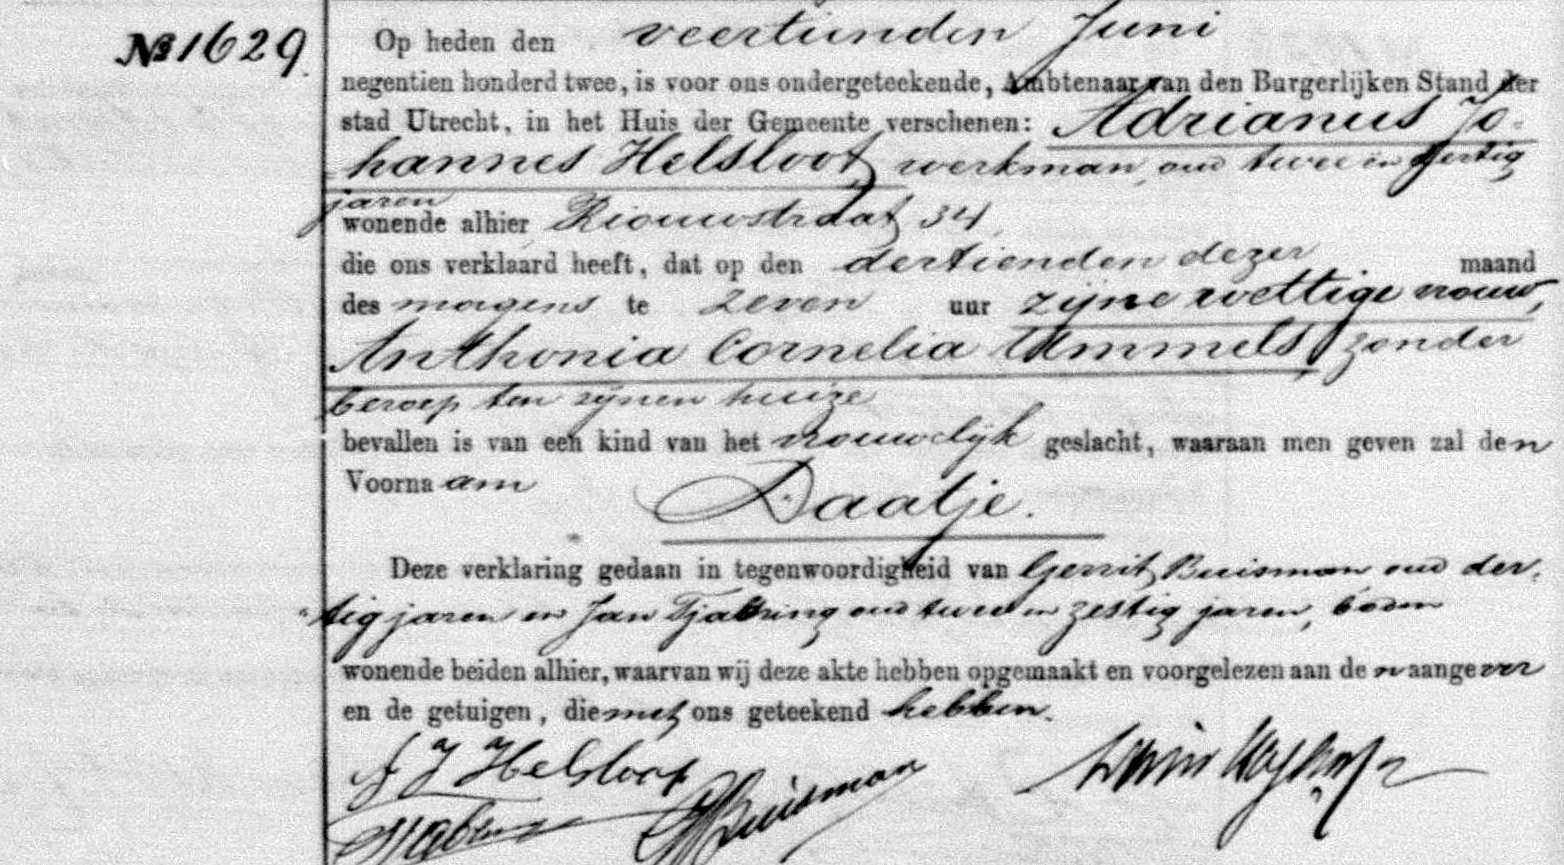 № 1629.
Op heden den veertienden Juni
negentien honderd twee, is voor ons ondergeteekende, Ambtenaar van den Burgerlijken Stand der
stad Utrecht, in het Huis der Gemeente verschenen: Adrianus Jo-
hannes Helsloot, werkman, oud twee en dertig
jaren
wonende alhier Riouwstraat 34,
die ons verklaard heeft, dat op den dertienden dezer maand
des morgens te zeven uur zijne wettige vrouw,
Anthonia Cornelia Ummels, zonder
beroep ten zijnen huize
bevallen is van een kind van het vrouwelijk geslacht, waaraan men geven zal den
Voornaam
Daatje.
Deze verklaring gedaan in tegenwoordigheid van Gerrit Buisman oud der-
tig jaren en Jan Tjabring oud twee en zestig jaren, boden
wonende beiden alhier, waarvan wij deze akte hebben opgemaakt en voorgelezen aan den aangever
en de getuigen, die met ons geteekend hebben.
A J Helsloot
Buisman